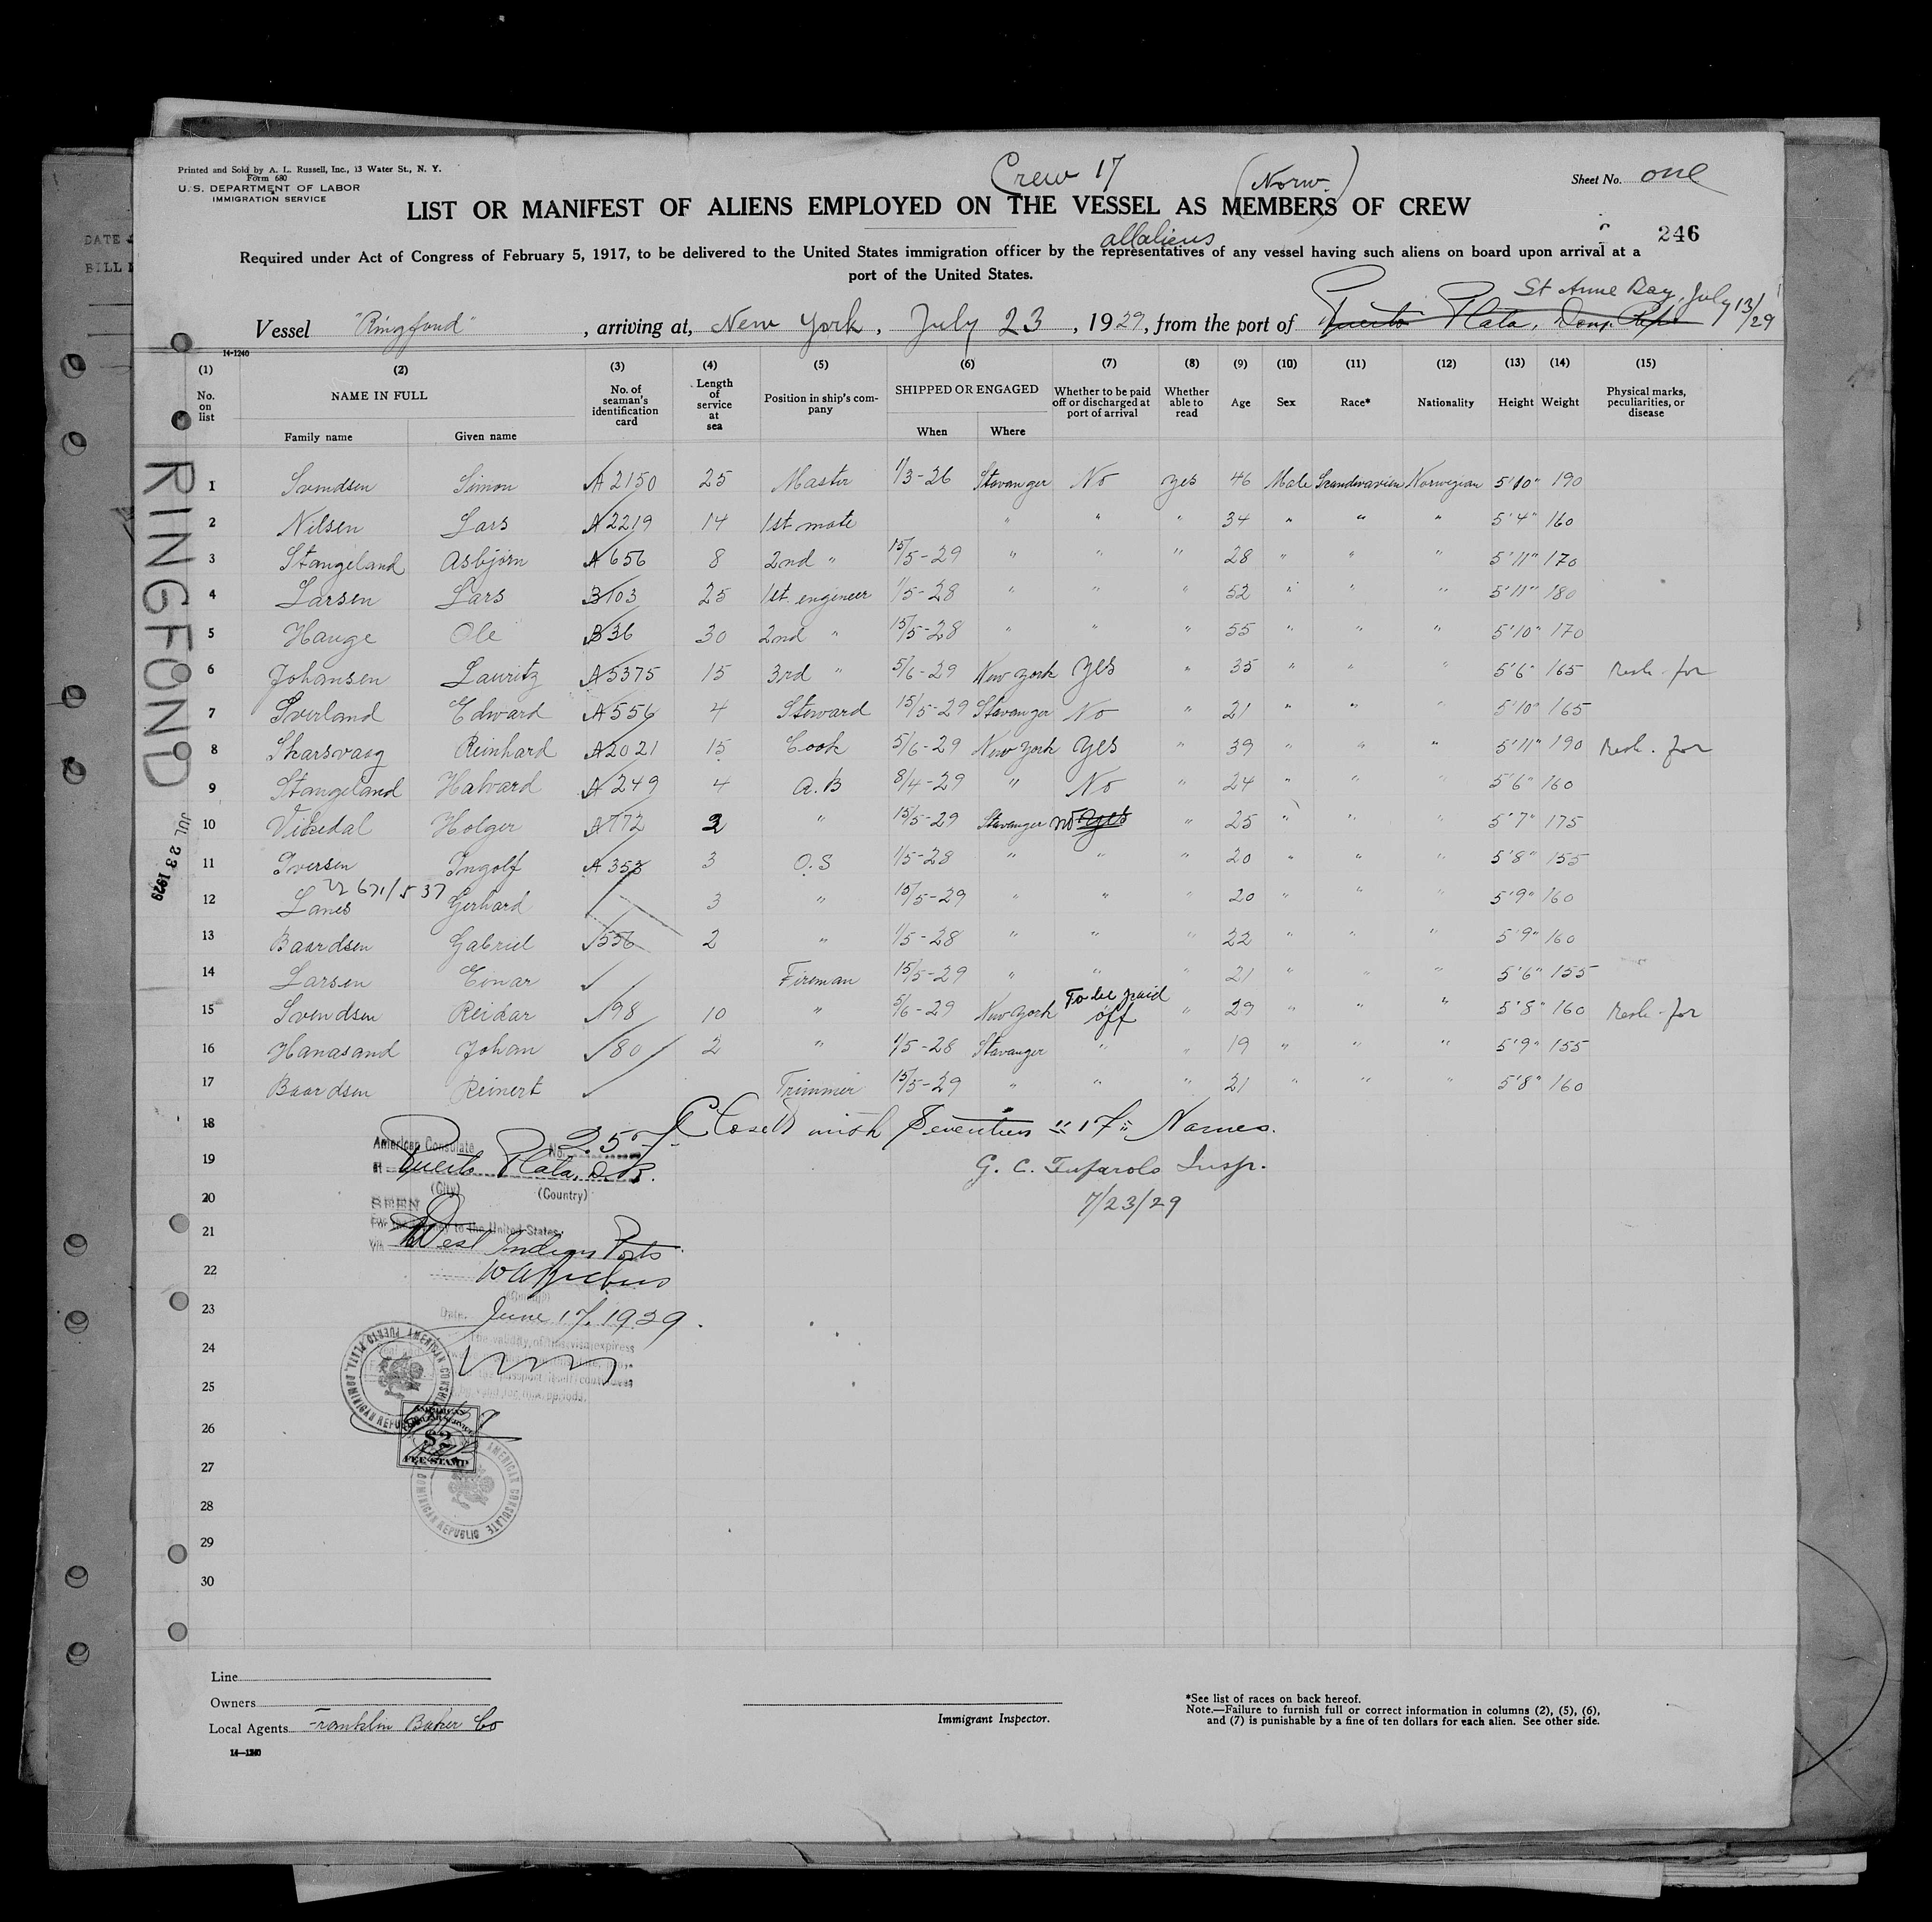 Printed and Sold by A. L. Russell, Inc., 13 Water St., N. Y.
Form 680
U. S. DEPARTMENT OF LABOR
IMMIGRATION SERVICE
Crew 17
(Norw.)
Sheet No. one
LIST OR MANIFEST OF ALIENS EMPLOYED ON THE VESSEL AS MEMBERS OF CREW
all aliens
246
Required under Act of Congress of February 5, 1917, to be delivered to the United States immigration officer by the representatives of any vessel having such aliens on board upon arrival at a
port of the United States.
St Anne Bay, July 13/29
Vessel "Ringfond", arriving at, New York, July 23, 1929, from the port of Puerto Plata, Dom. Rep.
14-1240
(1) (2) (3) (4) (5) (6) (7) (8) (9) (10) (11) (12) (13) (14) (15)
No. on list
NAME IN FULL
Family name
Given name
No. of seaman's identification card
Length of service at sea
Position in ship's company
SHIPPED OR ENGAGED
When
Where
Whether to be paid off or discharged at port of arrival
Whether able to read
Age
Sex
Race*
Nationality
Height
Weight
Physical marks, peculiarities, or disease
RINGFOND
JUL 23 1929
1 Svendsen Simon A 2150 25 Master 1/3-26 Stavanger No yes 46 Male Scandinavian Norwegian 5'10" 190
2 Nilsen Lars A 2219 14 1st mate " " " 34 " " " 5'4" 160
3 Stangeland Asbjörn A 656 8 2nd " 15/5-29 " " " 28 " " " 5'11" 170
4 Larsen Lars B 103 25 1st engineer 1/5-28 " " " 52 " " " 5'11" 180
5 Hauge Ole B 36 30 2nd " 15/5-28 " " " 55 " " " 5'10" 170
6 Johansen Lauritz A 5375 15 3rd " 5/6-29 New York yes " 35 " " " 5'6" 165
7 Sverland Edward A 556 4 Steward 15/5-29 Stavanger No " 21 " " " 5'10" 165
8 Skarsvaag Reinhard A 2021 15 Cook 5/6-29 New York yes " 39 " " " 5'11" 190
9 Stangeland Halvard A 249 4 A.B 8/4-29 " No " 24 " " " 5'6" 160
10 Vikedal Holger A 772 2 " 15/5-29 Stavanger no yes " 25 " " " 5'7" 175
11 Iversen Ingolf A 353 3 O.S 1/5-28 " " " 20 " " " 5'8" 155
22 671/537
12 Lanes Gerhard 3 " 15/5-29 " " " 20 " " " 5'9" 160
13 Baardsen Gabriel 556 2 " 1/5-28 " " " 22 " " " 5'9" 160
14 Larsen Einar Fireman 15/5-29 " " " 21 " " " 5'6" 155
15 Svendsen Reidar 98 10 " 5/6-29 New York To be paid off " 29 " " " 5'8" 160
16 Hanasand Johan 80 2 " 1/5-28 Stavanger " " 19 " " " 5'9" 155
17 Baardsen Reinert Trimmer 15/5-29 " " " 21 " " " 5'8" 160
18 Closed with Seventeen "17" Names.
American Consulate No. 257
19 at Puerto Plata, D.R.
G. C. Tufarolo Insp.
(City) (Country)
20 SEEN
7/23/29
For the journey to the United States
21 Via West Indian Ports
22
23 Date June 17, 1929.
The validity of this visa expires
24
25
26
27
28
29
30
AMERICAN CONSULATE PUERTO PLATA, DOMINICAN REPUBLIC
$2
FEE STAMP
AMERICAN CONSULATE DOMINICAN REPUBLIC
Line
Owners
Local Agents Franklin Baker Co
14—1240
Immigrant Inspector.
*See list of races on back hereof.
Note.—Failure to furnish full or correct information in columns (2), (5), (6),
and (7) is punishable by a fine of ten dollars for each alien. See other side.